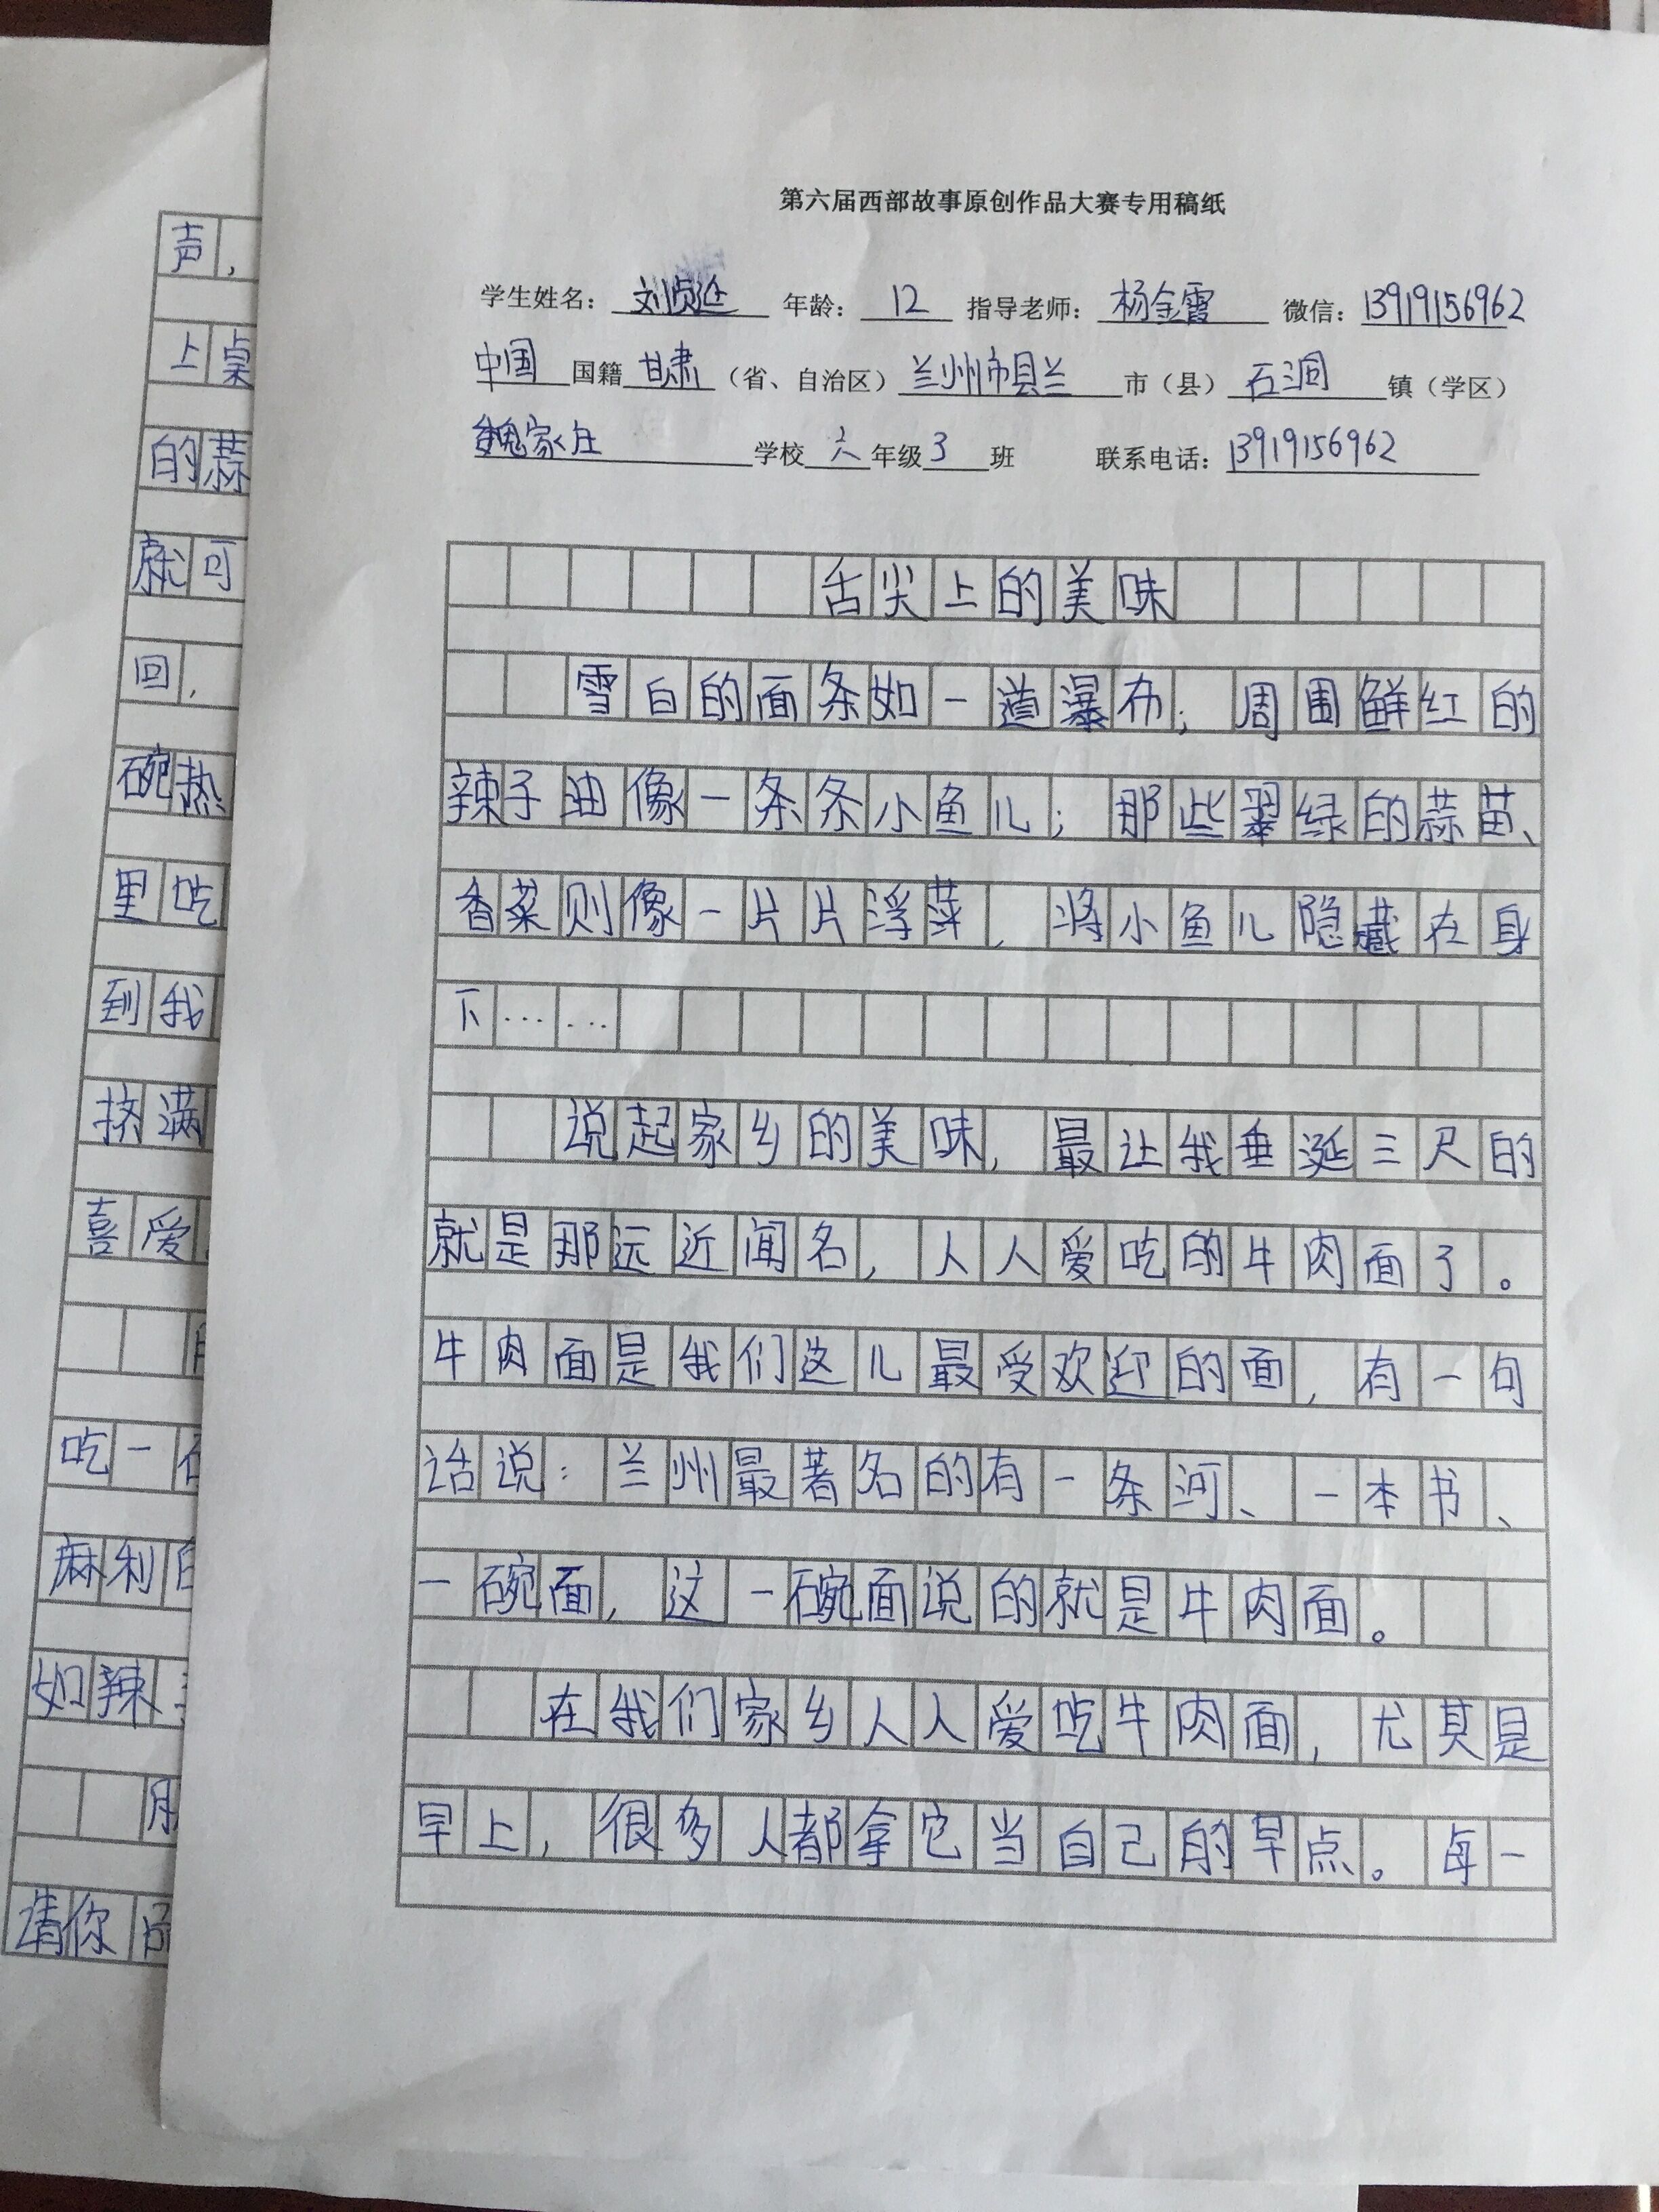 第六届西部故事原创作品大赛专用稿纸
学生姓名：刘贞延 年龄：12 指导老师：杨金霞 微信：13919156962
中国国籍甘肃（省、自治区）兰州市皋兰市（县）石洞镇（学区）
魏家庄学校六年级3班 联系电话：13919156962
舌尖上的美味
雪白的面条如一道瀑布；周围鲜红的
辣子油像一条条小鱼儿；那些翠绿的蒜苗、
香菜则像一片片浮萍，将小鱼儿隐藏在身
下……
说起家乡的美味，最让我垂涎三尺的
就是那远近闻名，人人爱吃的牛肉面了。
牛肉面是我们这儿最受欢迎的面，有一句
话说：兰州最著名的有一条河、一本书、
一碗面，这一碗面说的就是牛肉面。
在我们家乡人人爱吃牛肉面，尤其是
早上，很多人都拿它当自己的早点。每一
声，
上桌
的蒜
就可
回，
碗热
里吃
到我
挤满
喜爱
吃一
麻利
如辣
请你